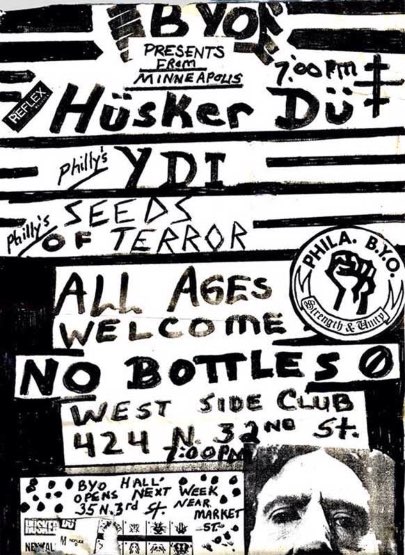 BYO
PRESENTS
FROM
MINNEAPOLIS
7:00 PM
REFLEX
Hüsker Dü
Philly's YDI
Philly's SEEDS
OF TERROR
PHILA. B.Y.O.
Strength & Unity
ALL AGES
WELCOME
NO BOTTLES
WEST SIDE CLUB
424 N. 32ND St.
7:00PM
BYO HALL
OPENS NEXT WEEK
35 N. 3rd St. NEAR
MARKET
ST
HÜSKER DÜ